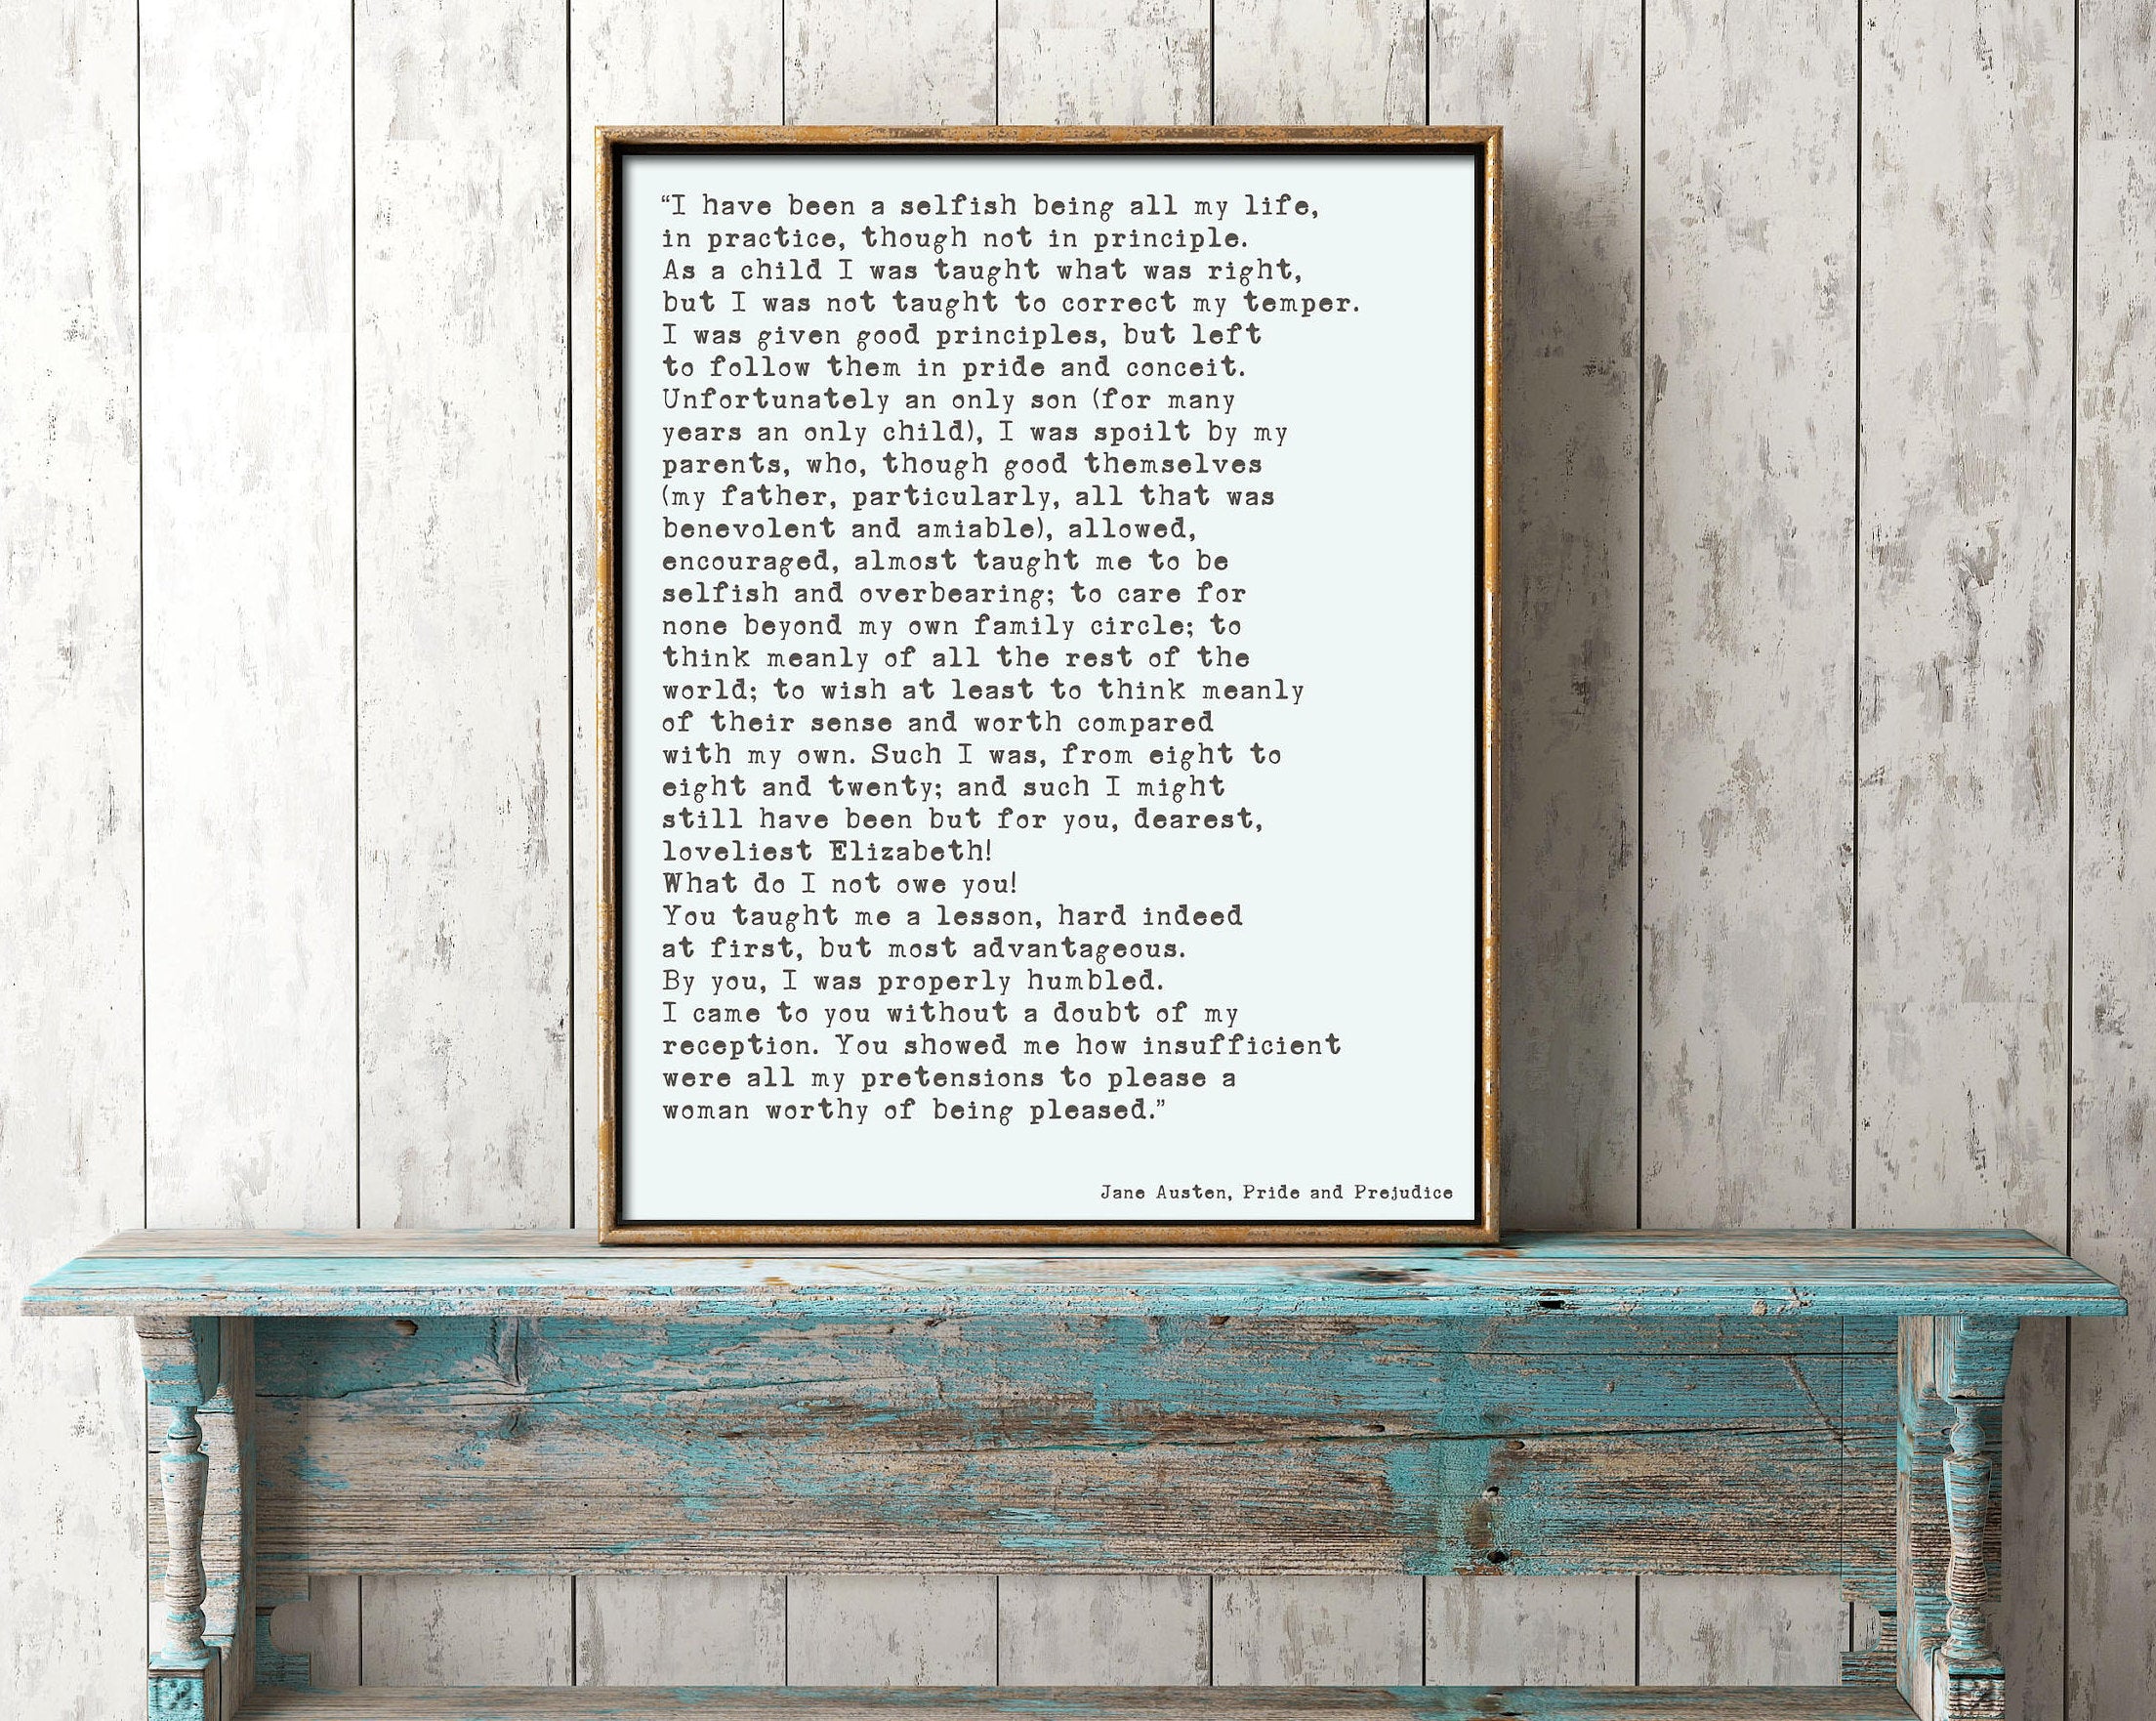 “I have been a selfish being all my life,
in practice, though not in principle.
As a child I was taught what was right,
but I was not taught to correct my temper.
I was given good principles, but left
to follow them in pride and conceit.
Unfortunately an only son (for many
years an only child), I was spoilt by my
parents, who, though good themselves
(my father, particularly, all that was
benevolent and amiable), allowed,
encouraged, almost taught me to be
selfish and overbearing; to care for
none beyond my own family circle; to
think meanly of all the rest of the
world; to wish at least to think meanly
of their sense and worth compared
with my own. Such I was, from eight to
eight and twenty; and such I might
still have been but for you, dearest,
loveliest Elizabeth!
What do I not owe you!
You taught me a lesson, hard indeed
at first, but most advantageous.
By you, I was properly humbled.
I came to you without a doubt of my
reception. You showed me how insufficient
were all my pretensions to please a
woman worthy of being pleased.”
Jane Austen, Pride and Prejudice